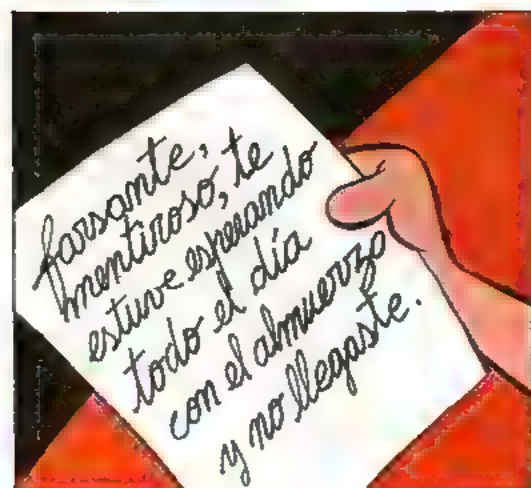 farsante,
mentiroso, te
estuve esperando
todo el día
con el almuerzo
y no llegaste.